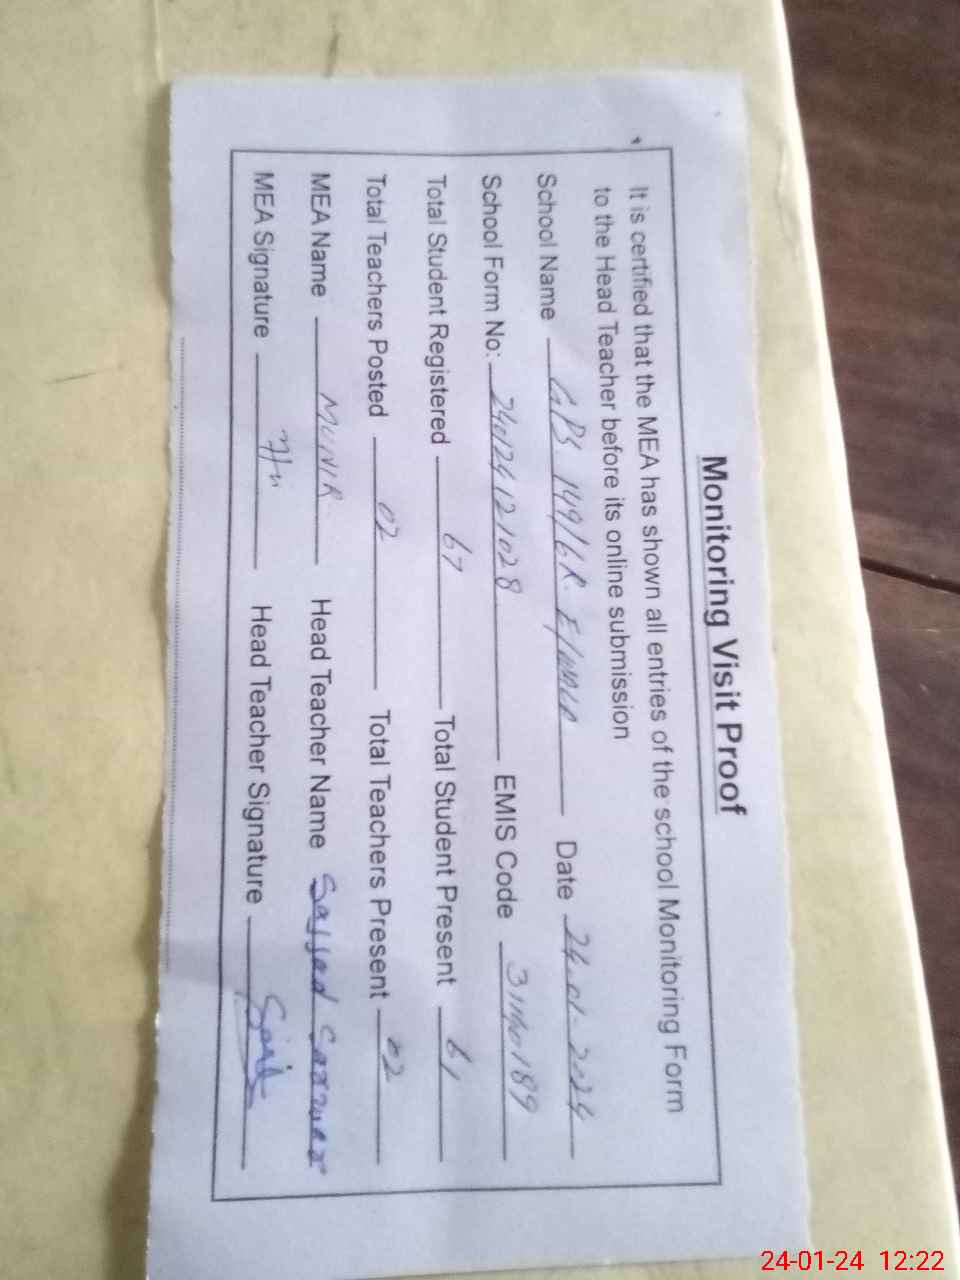 Monitoring Visit Proof
It is certified that the MEA has shown all entries of the school Monitoring Form
to the Head Teacher before its online submission
School Name GPS. 149/6R. Date 24-01-2024
School Form No: EMIS Code
Total Student Registered 67 Total Student Present 61
Total Teachers Posted 02 Total Teachers Present 02
MEA Name MUNIR Head Teacher Name Sajjad Sarwar
MEA Signature Head Teacher Signature
24-01-24 12:22